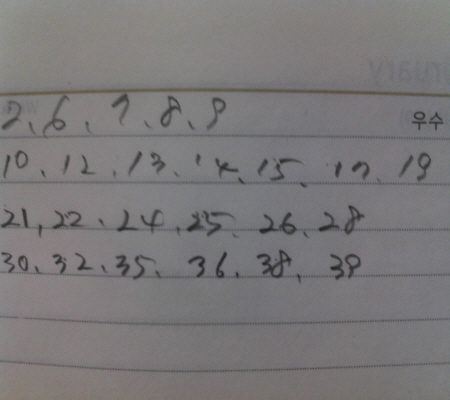 2, 6, 7, 8, 9
우수
10, 12, 13, 14, 15, 17, 19
21, 22, 24, 25, 26, 28
30, 32, 35, 36, 38, 39